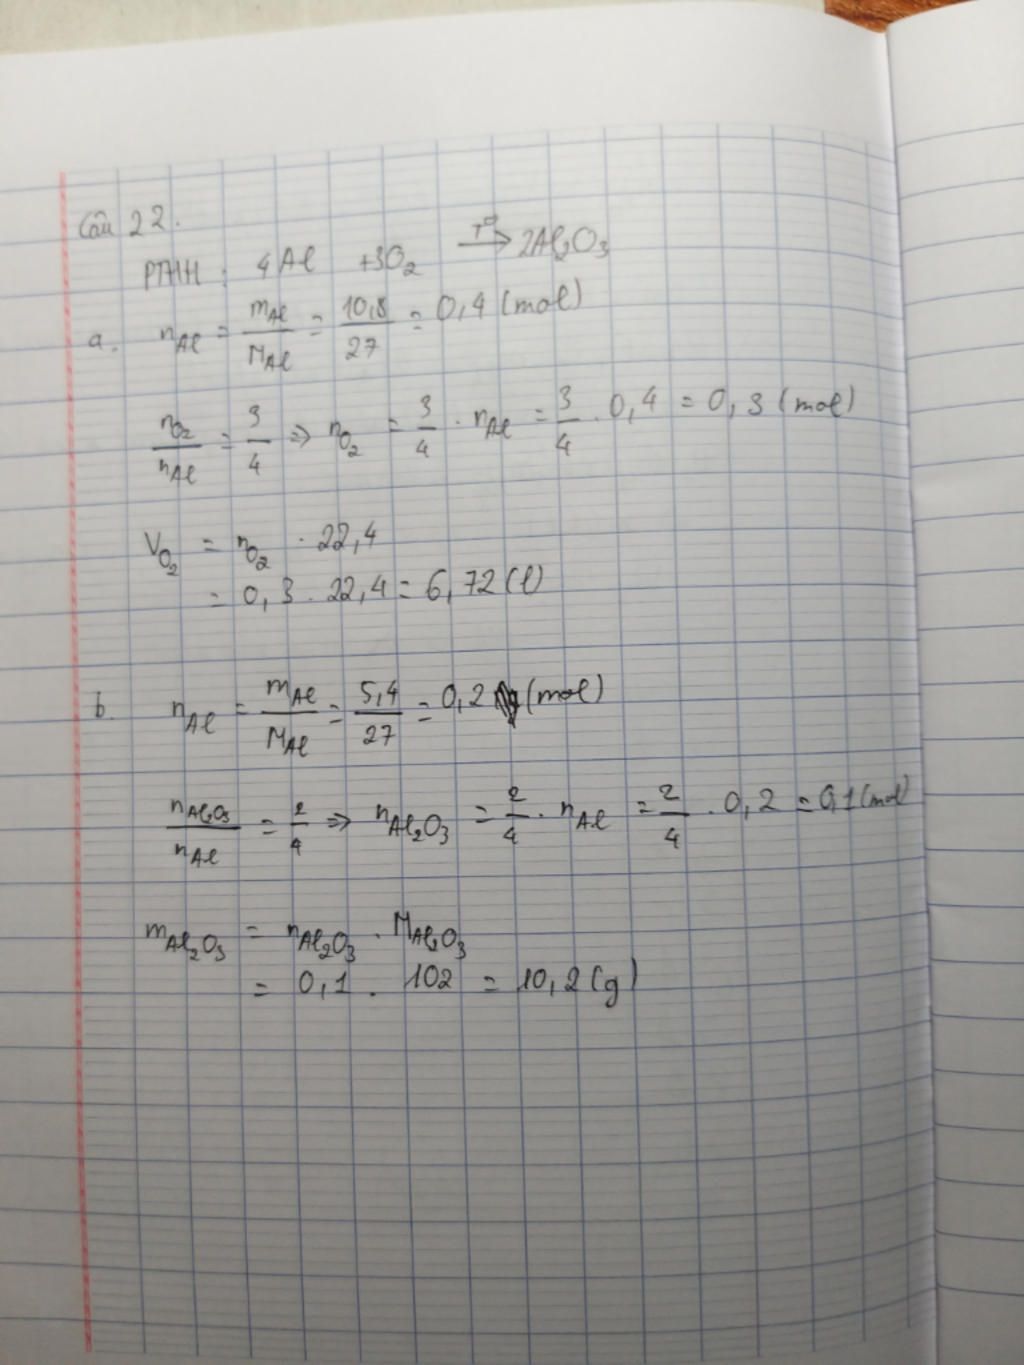 Câu 22.
PTHH : 4Al +3O₂ —T°→ 2Al₂O₃
a. nAl = mAl/MAl = 10,8/27 = 0,4 (mol)
nO₂/nAl = 3/4 => nO₂ = 3/4 . nAl = 3/4 . 0,4 = 0,3 (mol)
VO₂ = nO₂ . 22,4
= 0,3 . 22,4 = 6,72 (l)
b. nAl = mAl/MAl = 5,4/27 = 0,2 (mol)
nAl₂O₃/nAl = 2/4 => nAl₂O₃ = 2/4 . nAl = 2/4 . 0,2 = 0,1 (mol)
mAl₂O₃ = nAl₂O₃ . MAl₂O₃
= 0,1 . 102 = 10,2 (g)